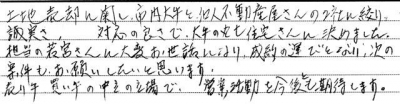 土地売却に関し、市内大手と知人不動産屋さんの2社に絞り、
誠実さ、対応の良さで、大手の住宅さんに決めました。
担当の若宮さんに大変お世話になり、成約の運びとなり、次の
案件もお願いしたいと思います。
売り手 買い手の中立の立場で、営業活動を今後も期待します。